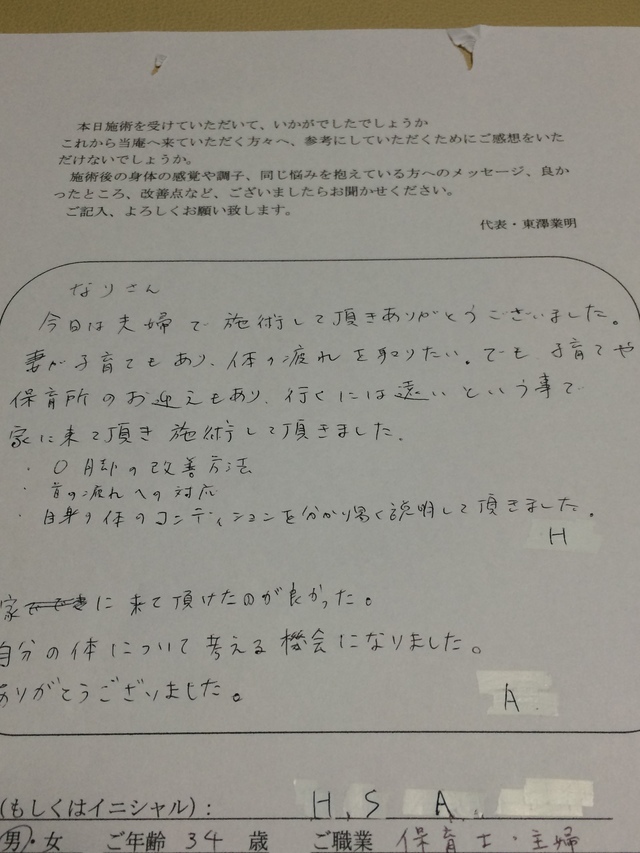 本日施術を受けていただいて、いかがでしたでしょうか
これから当庵へ来ていただく方々へ、参考にしていただくためにご感想をいた
だけないでしょうか。
施術後の身体の感覚や調子、同じ悩みを抱えている方へのメッセージ、良か
ったところ、改善点など、ございましたらお聞かせください。
ご記入、よろしくお願い致します。
代表・東澤業明
なりさん
今日は夫婦で施術して頂きありがとうございました。
妻が子育てもあり、体の疲れを取りたい。でも子育てや
保育所のお迎えもあり、行くには遠いという事で
家に来て頂き施術して頂きました。
・O脚の改善方法
・首の疲れへの対応
・自身の体のコンディションを分かり易く説明して頂きました。
H
家に来て頂けたのが良かった。
自分の体について考える機会になりました。
ありがとうございました。
A
(もしくはイニシャル)： H.S A.
男・女 ご年齢 34 歳 ご職業 保育士・主婦